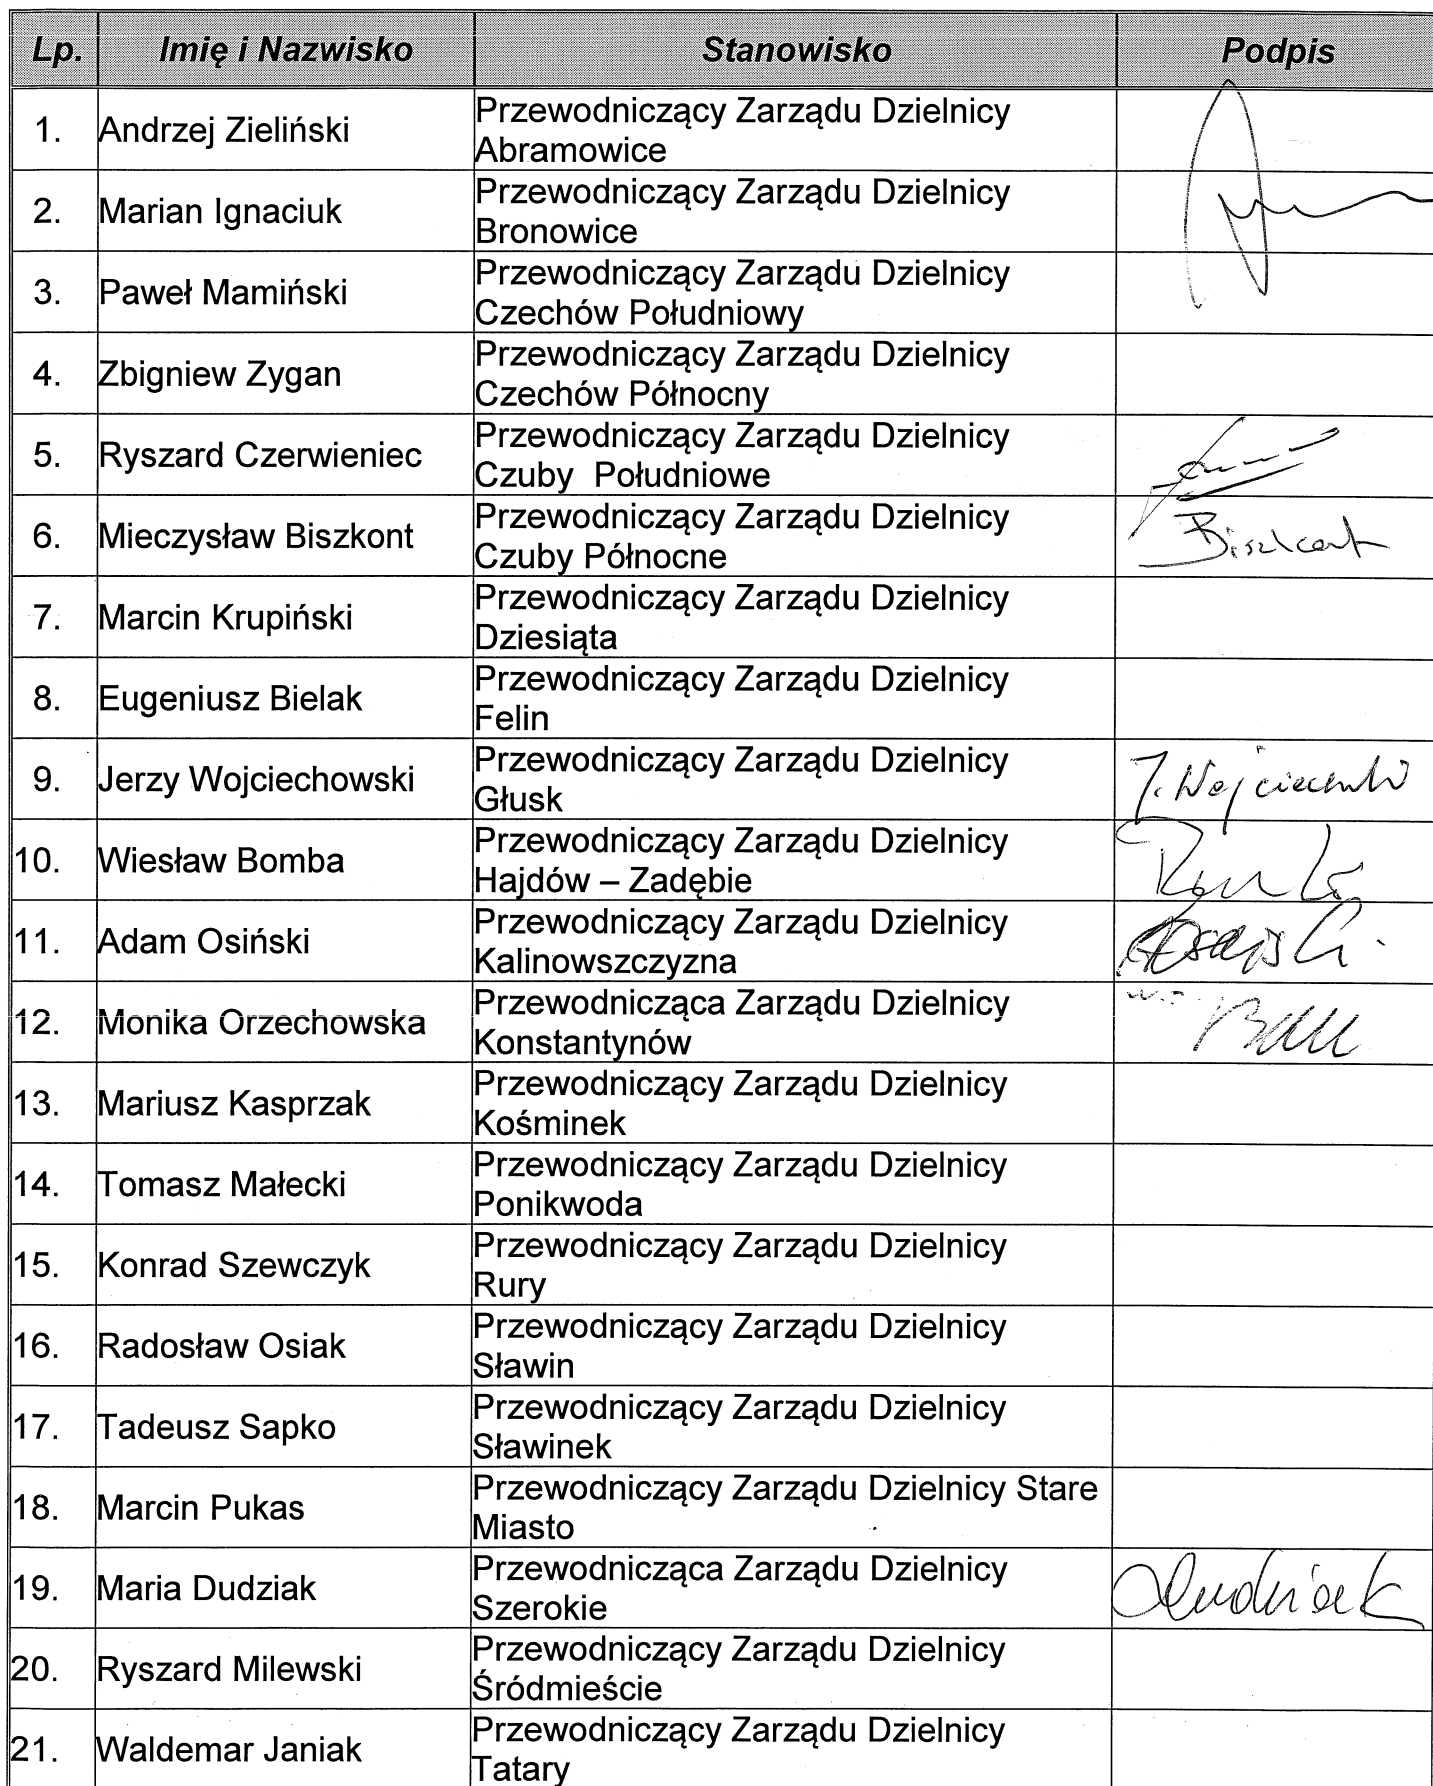 Lp. Imię i Nazwisko Stanowisko Podpis
1. Andrzej Zieliński Przewodniczący Zarządu Dzielnicy
Abramowice
2. Marian Ignaciuk Przewodniczący Zarządu Dzielnicy
Bronowice
3. Paweł Mamiński Przewodniczący Zarządu Dzielnicy
Czechów Południowy
4. Zbigniew Zygan Przewodniczący Zarządu Dzielnicy
Czechów Północny
5. Ryszard Czerwieniec Przewodniczący Zarządu Dzielnicy
Czuby Południowe
6. Mieczysław Biszkont Przewodniczący Zarządu Dzielnicy Biszkont
Czuby Północne
7. Marcin Krupiński Przewodniczący Zarządu Dzielnicy
Dziesiąta
8. Eugeniusz Bielak Przewodniczący Zarządu Dzielnicy
Felin
9. Jerzy Wojciechowski Przewodniczący Zarządu Dzielnicy
Głusk
10. Wiesław Bomba Przewodniczący Zarządu Dzielnicy
Hajdów – Zadębie
11. Adam Osiński Przewodniczący Zarządu Dzielnicy
Kalinowszczyzna
12. Monika Orzechowska Przewodnicząca Zarządu Dzielnicy
Konstantynów
13. Mariusz Kasprzak Przewodniczący Zarządu Dzielnicy
Kośminek
14. Tomasz Małecki Przewodniczący Zarządu Dzielnicy
Ponikwoda
15. Konrad Szewczyk Przewodniczący Zarządu Dzielnicy
Rury
16. Radosław Osiak Przewodniczący Zarządu Dzielnicy
Sławin
17. Tadeusz Sapko Przewodniczący Zarządu Dzielnicy
Sławinek
18. Marcin Pukas Przewodniczący Zarządu Dzielnicy Stare
Miasto
19. Maria Dudziak Przewodnicząca Zarządu Dzielnicy Dudziak
Szerokie
20. Ryszard Milewski Przewodniczący Zarządu Dzielnicy
Śródmieście
21. Waldemar Janiak Przewodniczący Zarządu Dzielnicy
Tatary